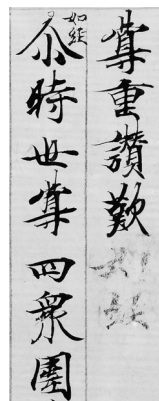 尊重讃歎
如經
尒時世尊四衆圍